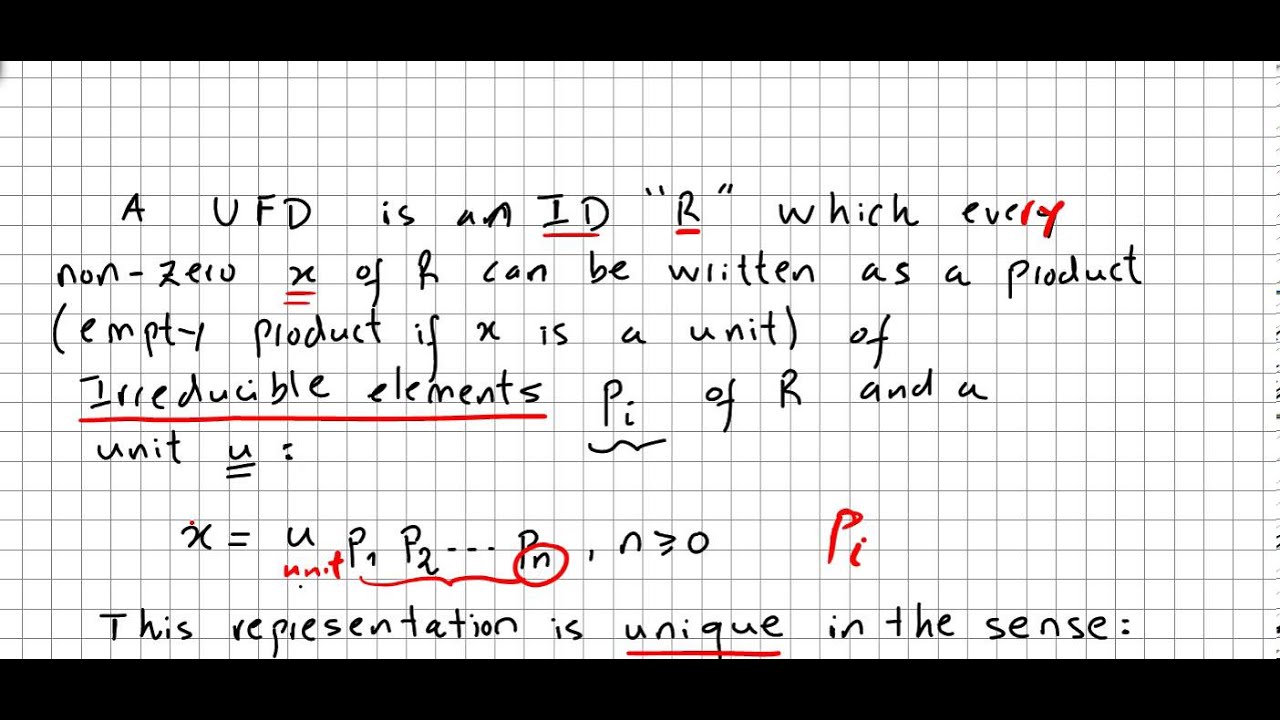 A UFD is an ID "R" which every
non-zero x of R can be written as a product
(empty product if x is a unit) of
Irreducible elements Pi of R and a
unit u :
x = u P1 P2 ... Pn , n ≥ 0 Pi
unit
This representation is unique in the sense: